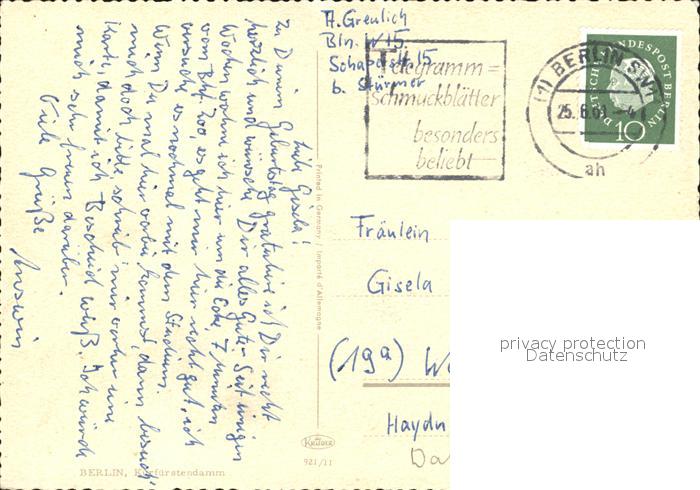 A. Greulich
Bln. W 15
Schaperstr. 15
b. Stürmer
Telegramm=
Schmuckblätter
besonders
beliebt
(1) BERLIN SW 11
25.6.61
ah
DEUTSCHE BUNDESPOST BERLIN
10
Liebe Gisela!
Zu Deinem Geburtstag gratuliere ich Dir recht
herzlich und wünsche Dir alles Gute. Seit einigen
Wochen wohne ich hier um die Ecke, 7 Minuten
vom Bhf. Zoo, es geht mir hier recht gut, ich
versuche es nochmal mit dem Studium.
Wenn Du mal hier vorbei kommst, dann besuch'
mich doch bitte, schreib mir vorher eine
Karte, damit ich Bescheid weiß. Ich würde
mich sehr freuen darüber.
Viele Grüße
Printed in Germany / Importé d'Allemagne
Fräulein
Gisela
(19a) W
Haydn
Da
privacy protection
Datenschutz
Krüger
921/11
BERLIN, Kurfürstendamm